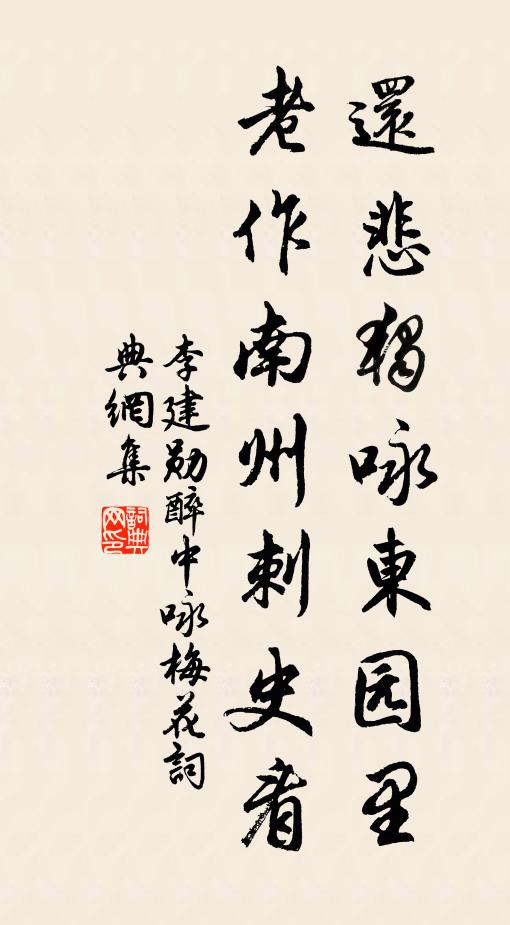 還悲獨咏東园里
老作南州刺史看
李建勋醉中咏梅花詞
典網集
詞典
网印